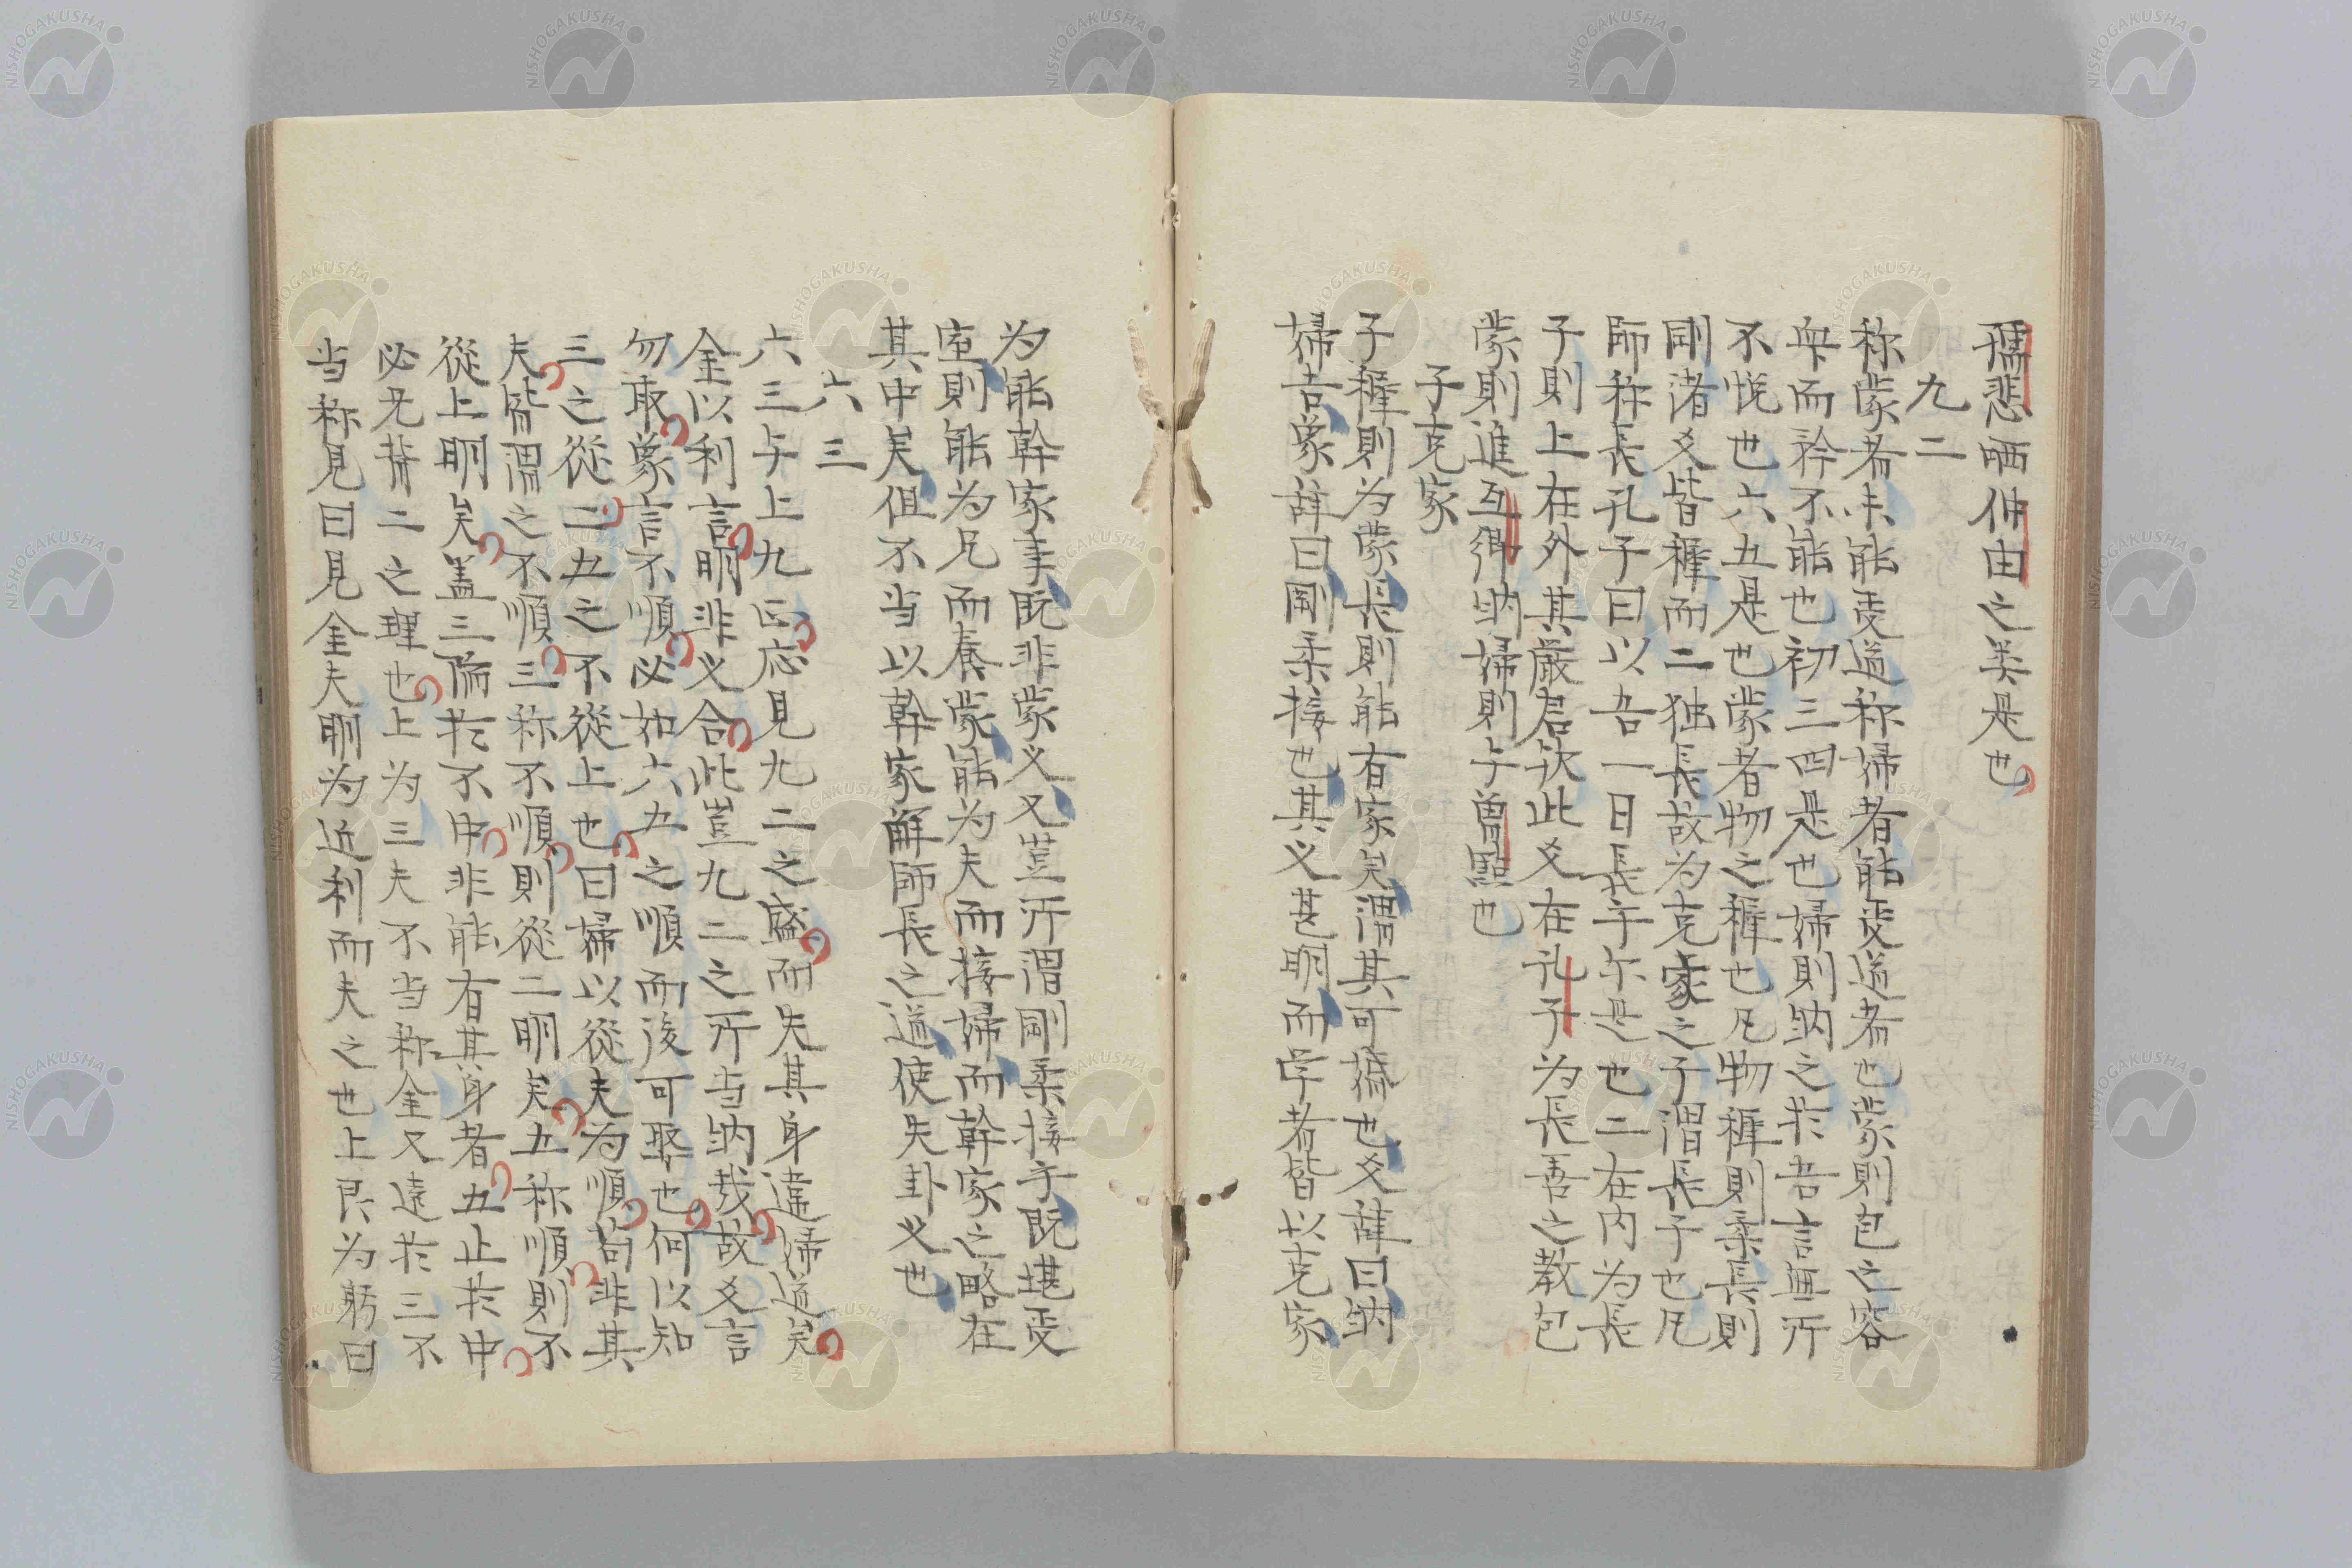 孺悲晒仲由之类是也
九二
称蒙者未能受道称婦者能受道者也蒙則包之容
毋而矜不能也初三四是也婦則纳之於吾言無所
不悅也六五是也蒙者物之穉也凡物穉則柔長則
剛諸爻皆穉而二独長故为克家之子謂長子也凡
師称長孔子曰以吾一日長乎尔是也二在内为長
子則上在外其嚴君欤此爻在孔子为長吾之教包
蒙則進互鄉纳婦則与曽點也
子克家
子穉則为蒙長則能有家矣謂其可搆也爻辞曰纳
婦吉象辞曰剛柔接也其义甚明而学者皆以克家
为能幹家事既非蒙义又豈所謂剛柔接乎既堪受
室則能为兄而養蒙能为夫而接婦而幹家之略在
其中矣但不当以幹家觧師長之道使失卦义也
六三
六三与上九正应見九二之盛而失其身違婦道矣
金以利言明非义合此豈九二之所当纳哉故爻言
勿取象言不順必如六五之順而後可娶也何以知
三之從二五之不從上也曰婦以從夫为順苟非其
夫皆謂之不順三称不順則從二明矣五称順則不
從上明矣盖三偏於不中非能有其身者五止於中
必无背二之理也上为三夫不当称金又遠於三不
当称見曰見金夫明为近利而夫之也上艮为躬曰